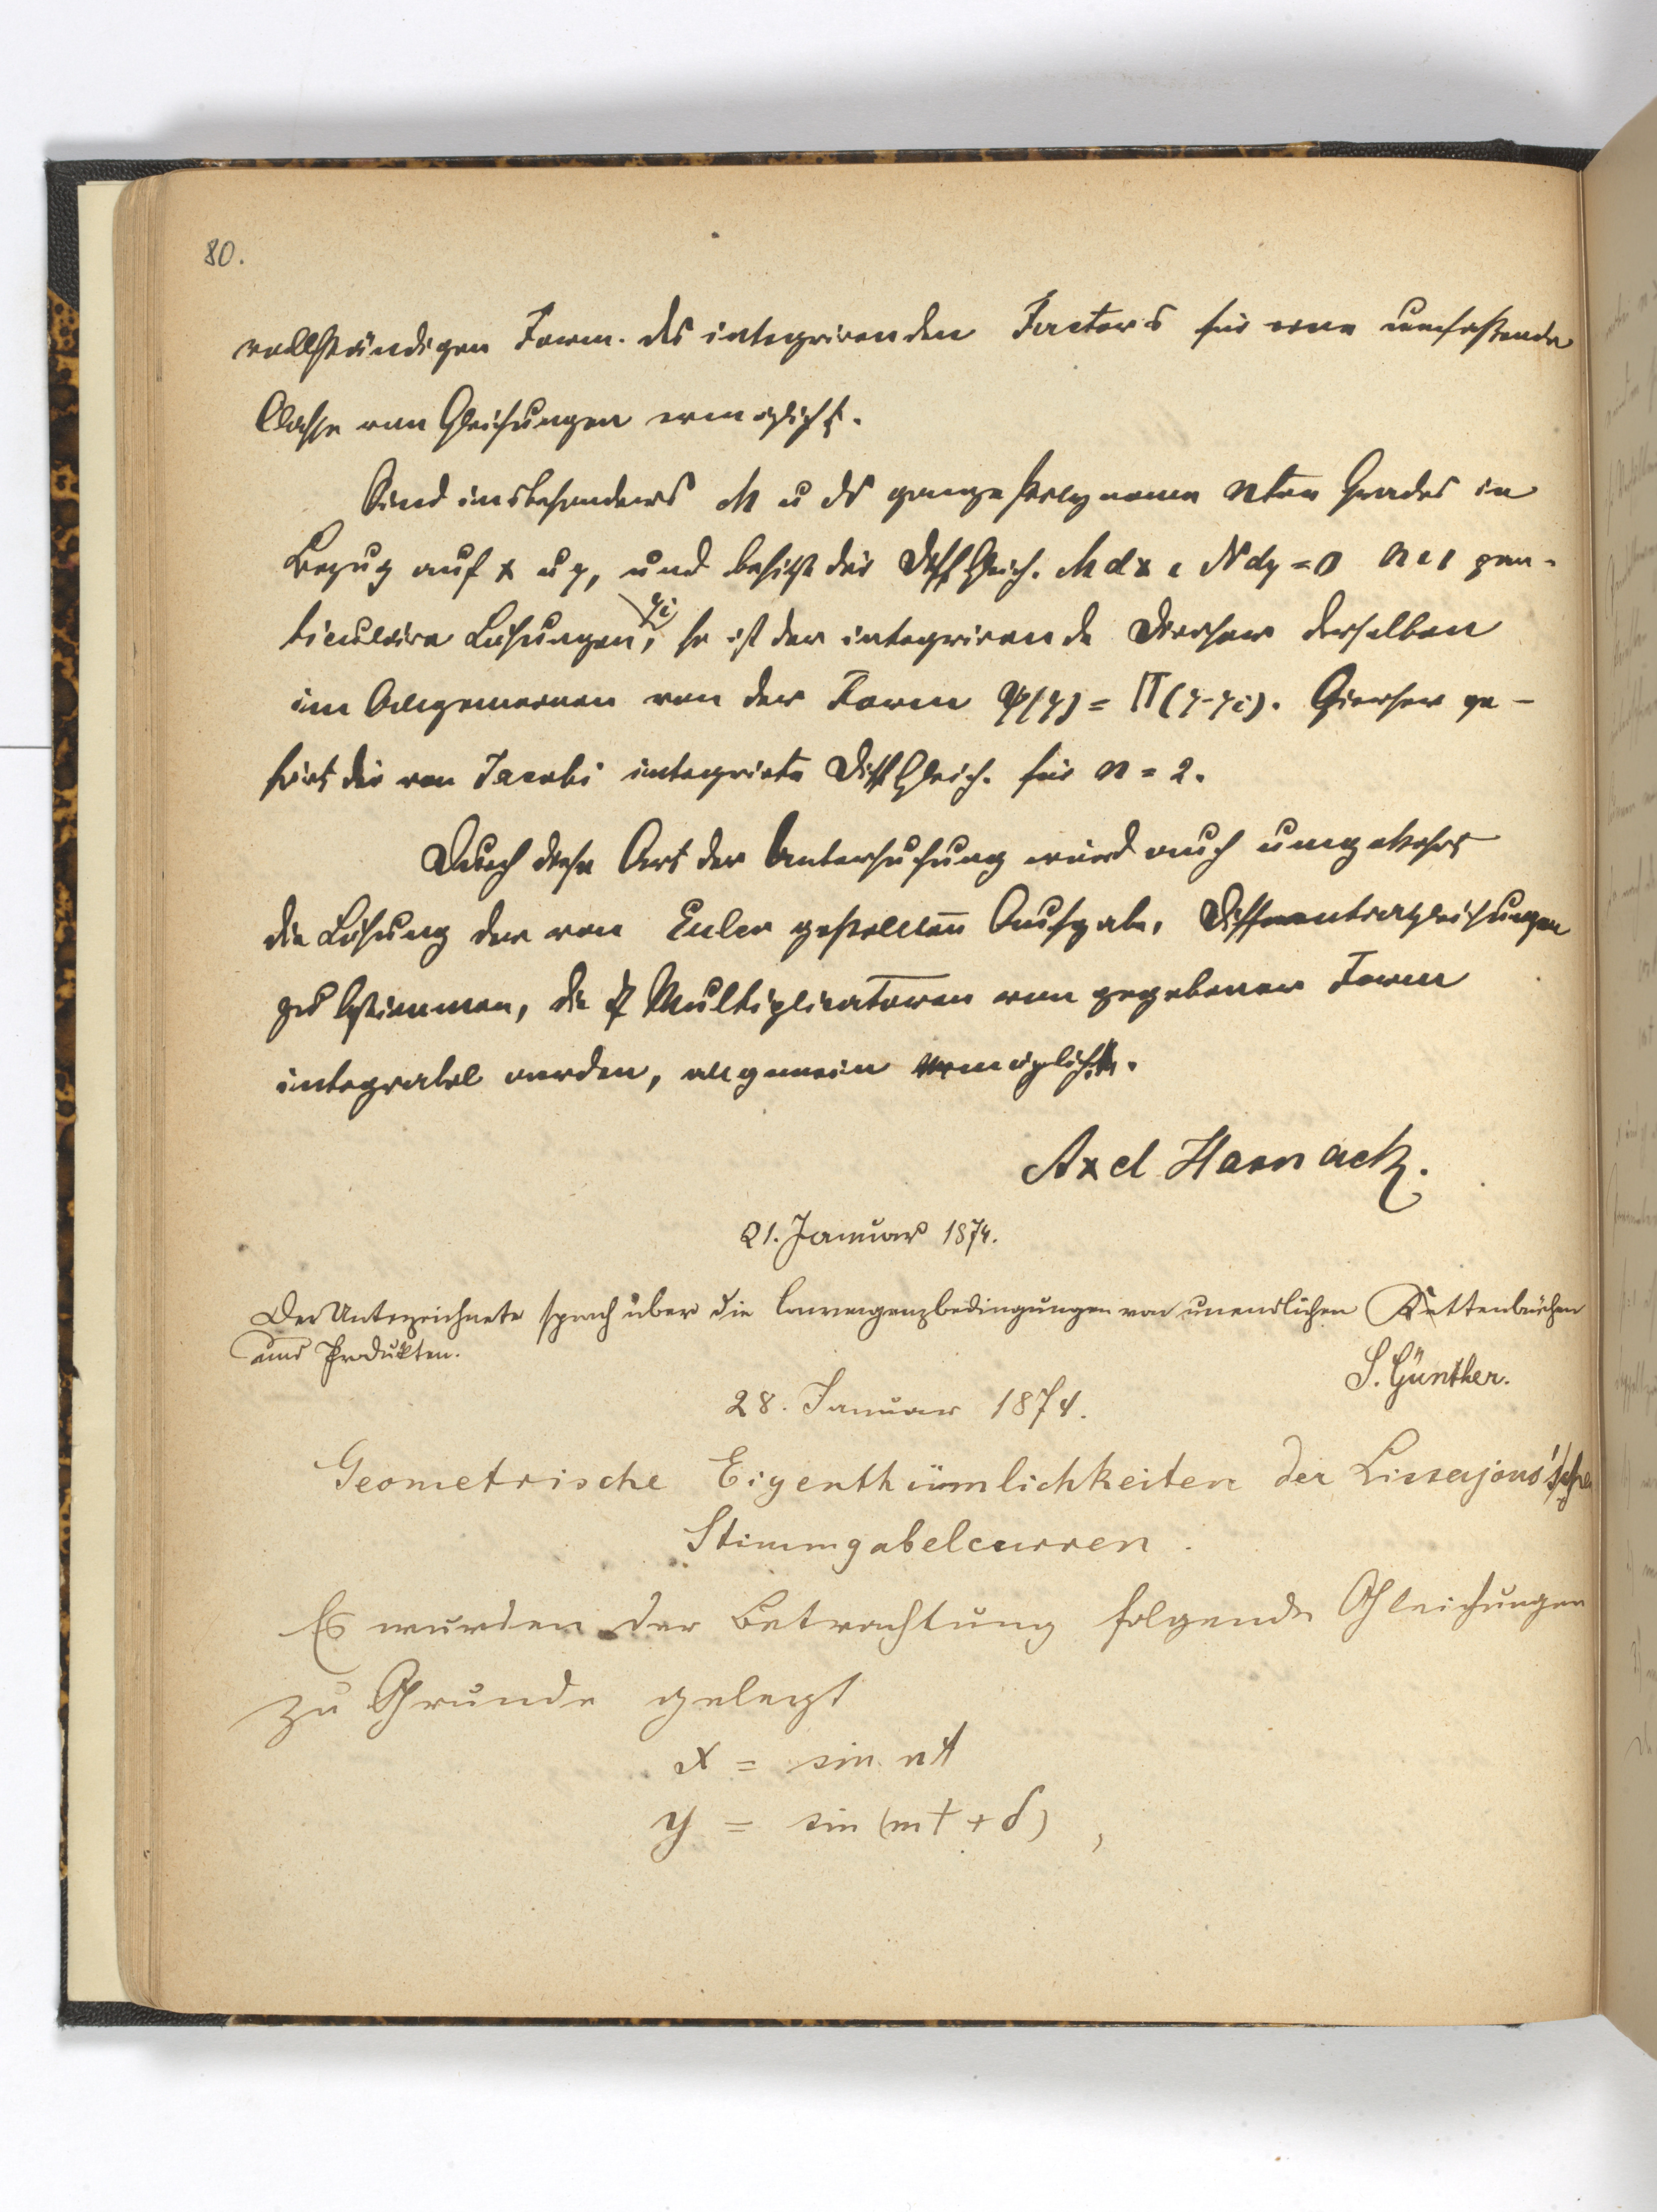 80.
vollständigen Form. des integrirenden Factors für eine umfaßende
Classe von Gleichungen ermöglicht.
Sind insbesonders M u N ganze Polynome nten Grades in
Bezug auf x u y, und besitzt die Diff Gleich. M dx + N dy = 0 n+1 par-
ticuläre Lösungen yi, so ist der integrirende Divisor derselben
im Allgemeinen von der Form φ(y) = Π(y-yi). Hierher ge-
hört die von Jacobi integrirte Diff Gleich. für n = 2.
Durch diese Art der Untersuchung wird auch umgekehrt
die Lösung der von Euler gestellten Aufgabe, Differentialgleichungen
zu bestimmen, die Multiplicatoren von gegebener Form
integrabel werden, allgemein ermöglicht.
Axel Harnack.
21. Januar 1874.
Der Unterzeichnete sprach über die Convergenzbedingungen von unendlichen Kettenbrüchen
und Produkten.
S. Günther.
28. Januar 1874.
Geometrische Eigenthümlichkeiten der Lissajous'schen
Stimmgabelcurven.
Es wurden der Betrachtung folgende Gleichungen
zu Grunde gelegt
x = sin nt
y = sin (mt + δ) ,